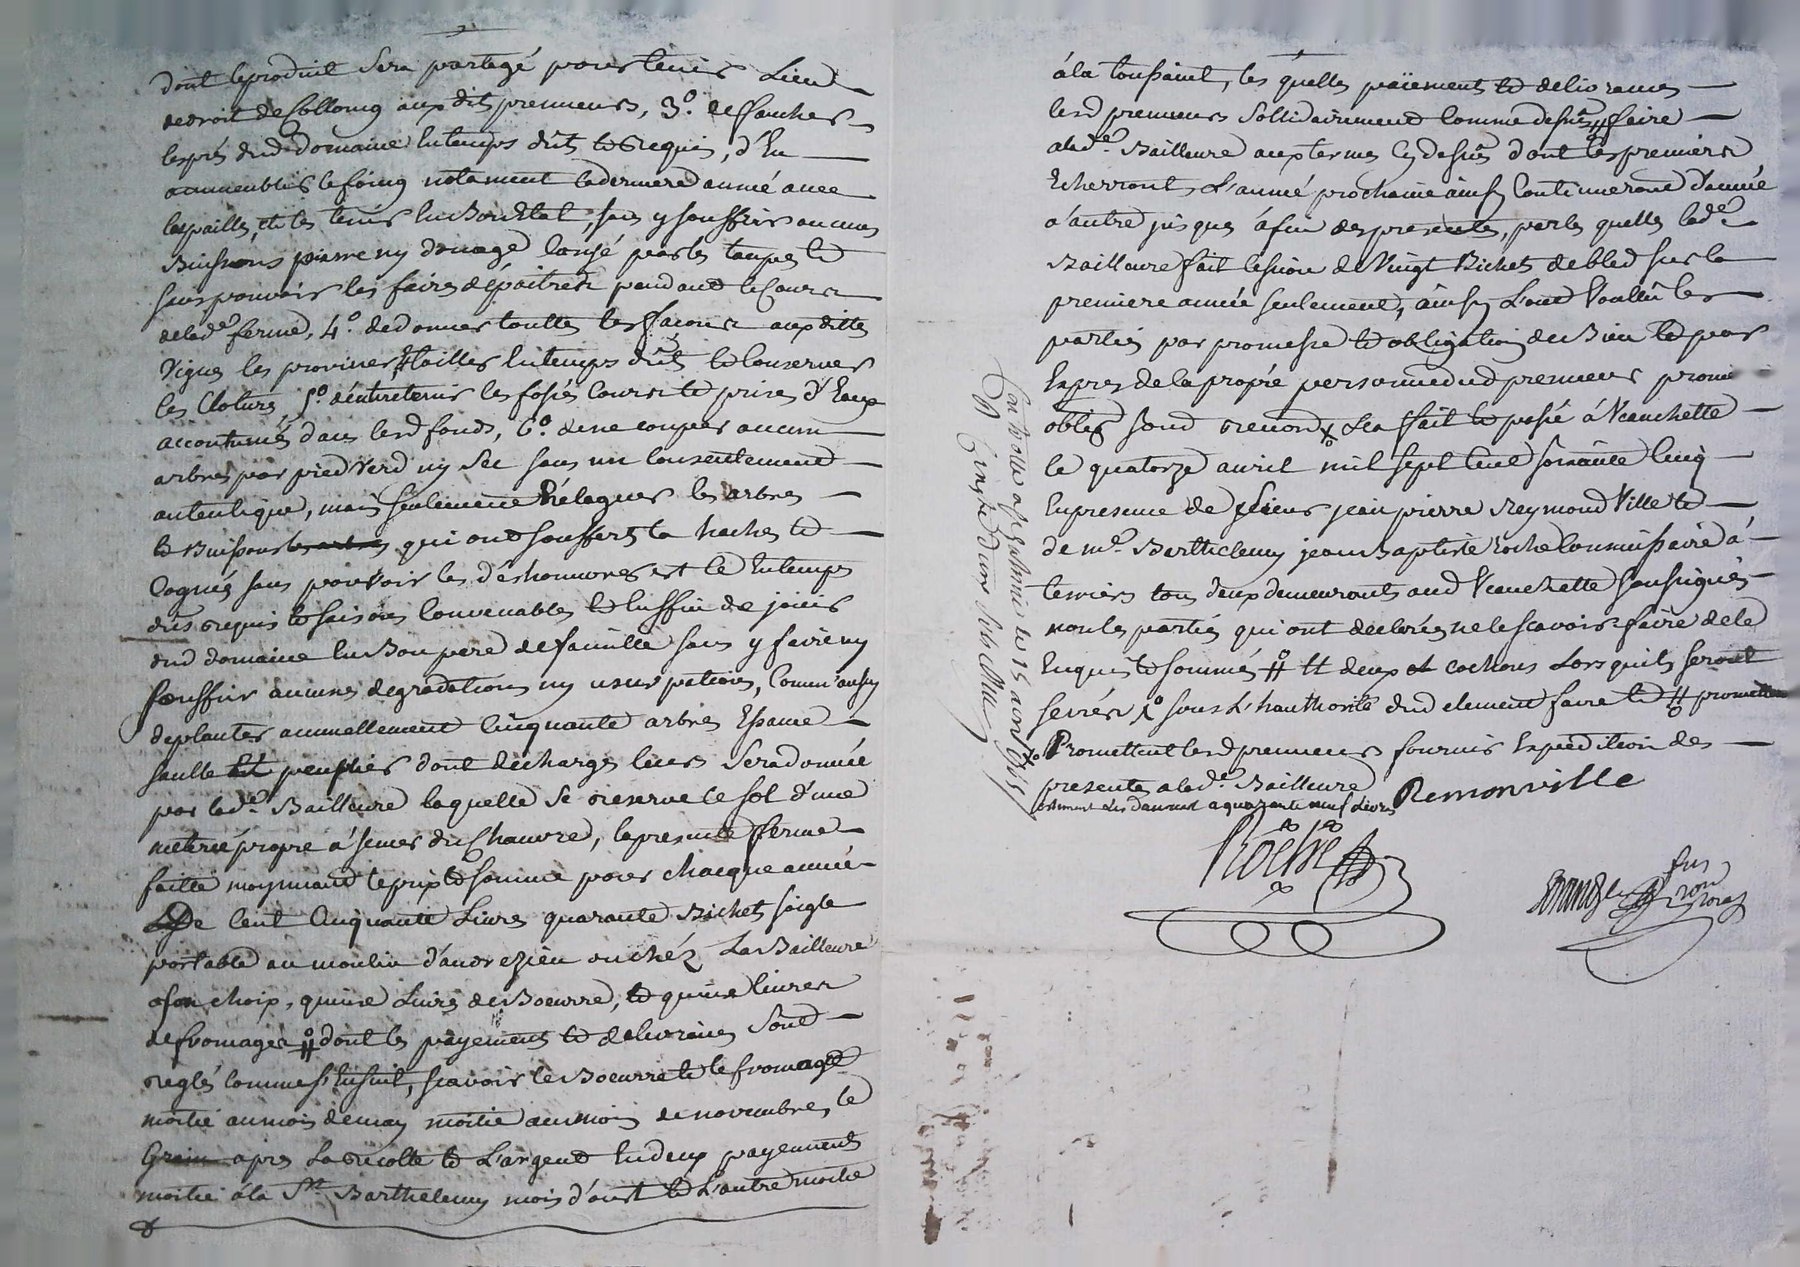 dont le produit sera partagé pour tenir Lieu
de droit de Collong aux dits prenneurs, 3.º de faucher
les prés dud. Domaine en temps dûs et requis, d'En
ammeubler le foing notament la derniere année avec
les pailles, et les tenir en Bon Etat, sans y souffrir aucuns
Buissons pierre ny domage causé par les taupes et
sans pouvoir les faires dépaitrer pendant le Cours
de lad.e ferme, 4.º de donner touttes les facons aux dittes
Vignes les proviner tailler en temps dûs et Conserver
les Clotures, 5.º d'entretenir les fossés Cours et prises d'Eaux
accoutumés dans lesd fonds, 6.º de ne couper aucun
arbres par pied Verd ny Sec sans un Consentement
autentique, mais seulement Elaguer les arbres
& Buissons qui ont souffert la hache et
Cognés sans pouvoir les déshonnorer et ce en temps
dûs requis et saisons Convenables et Enffin de joüir
dud domaine en Bon pere de famille sans y faire ny
souffrir aucunes degradations ny usurpations, Comm'aussy
de planter annuellement Cinquante arbres Essance
saulle et peuplier dont décharge leurs Sera donnée
par lad.e Bailleure laquelle se reserve le sol d'une
meterée propre à semer du Chanvre, la presente ferme
faitte moyennant le prix et somme pour chacque année
De Cent Cinquante Livres quarante Bichet soigle
portable au moulin d'andrezieu ou chéz La Bailleure
a son choix, quinze Livres de Boeurre, et quinze Livres
de fromages # dont les payements et delivrances sont
reglés Comme s'Ensuit, scavoir le Boeurre et le fromage
moitié au mois de may moitié au mois de novembre, le
Grain apres La recolte et L'argent En deux payements
moitié à la S.t Barthelemy mois d'aout et L'autre moitié
à la toussaint, les quelles païements et delivrances
lesd prenneurs Sollidairement Comme dessus faire
a lad.e Bailleure aux termes Cy dessus dont les premiers
Echerront L'année prochaine ainsy Continueront d'année
a autre jusques à fin des presentes, par les quelles lad.e
Bailleure fait de Vingt Bichet de bled sur la
premiere année seulement, ainsy L'ont Voullû les
parties par promesse et obligation de Bien et par
Expres de la propre personne dud prenneur promis
oblig soud renond Xº Lea fait et passé à Veauchette
le quatorze avril mil sept Cent soixante Cinq
En presence de Sieur jean pierre Reymond Ville et
de m.e Barthelemy jean Baptiste Roche Commissaire à
terriers tous deux demeurants aud Veauchette soussignés
non les parties qui ont declarées ne le scavoir faire de ce
Enquis et sommés # deux cochons Lors quils seront
serrés Xº sous L'hauthorité dud element faire et # promettent
Xº Promettent lesd prenneurs fournir Expedition des
presentes a lad.e Bailleure
estiment Les dannées a quarante neuf Livres
Remonville
Roche
Controllé a St Galmier le 15 avril 1765